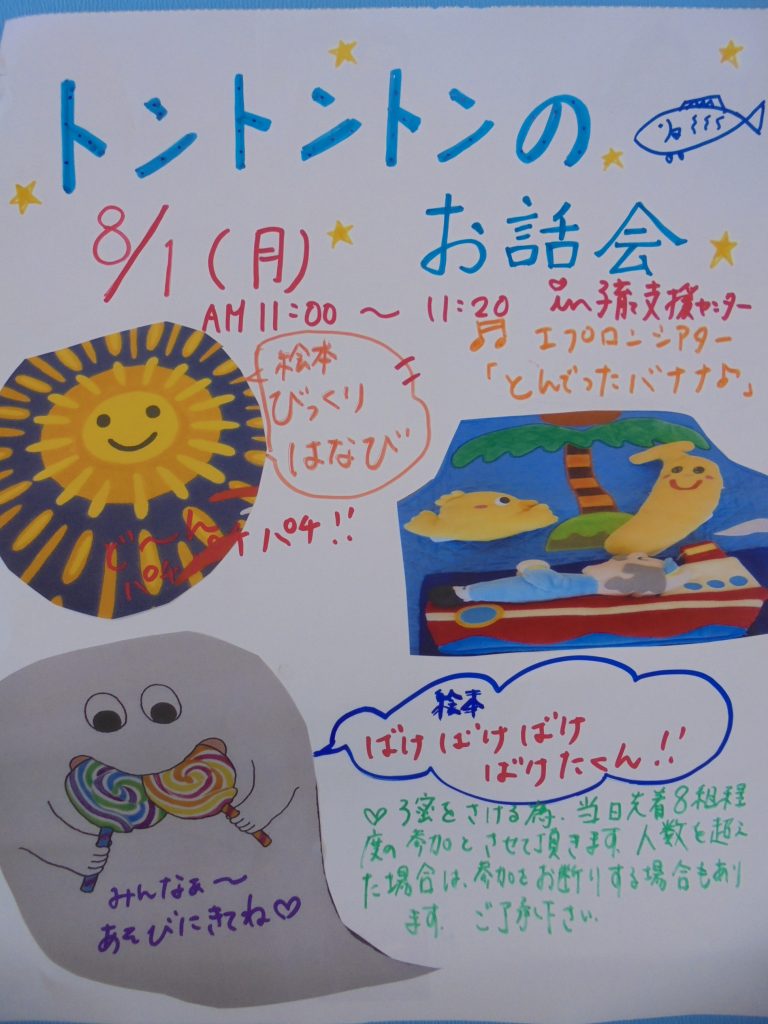 トントントンの
お話会
8/1(月)
AM 11:00 ～ 11:20 in 子育て支援センター
絵本
びっくり
はなび
ど〜ん
パチパチパチ!!
エプロンシアター
「とんでったバナナ♪」
絵本
ばけばけばけ
ばけたくん!!
♡3蜜をさける為、当日先着8組程
度の参加とさせて頂きます。人数を超え
た場合は、参加をお断りする場合もあり
ます。ご了承下さい。
みんなぁ〜
あそびにきてね♡